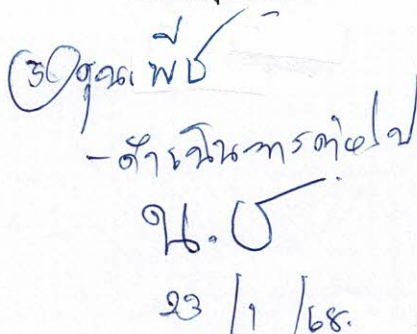 ③ คุณ พืช
- ดำเนินการต่อไป
น.ช
23 /1 /68.